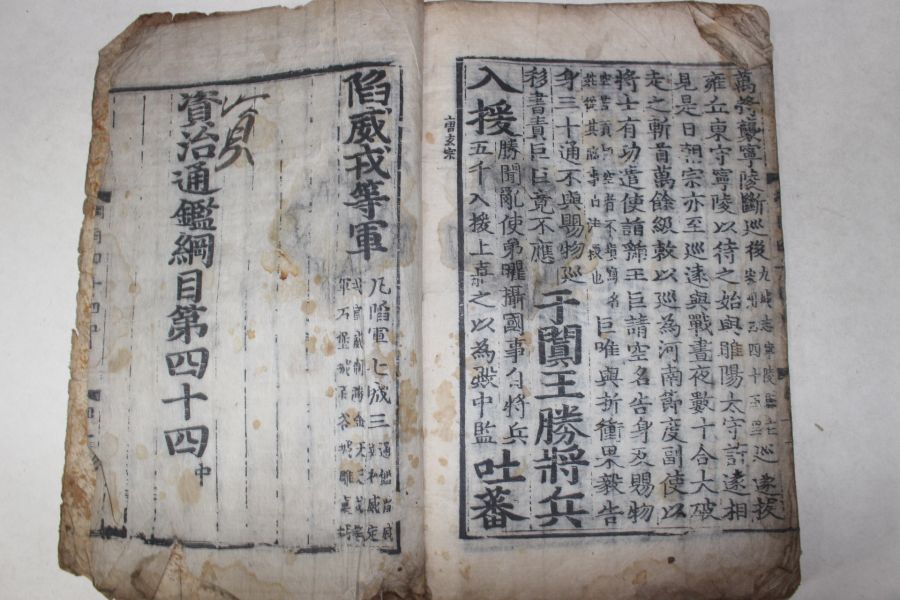 萬將襲寧陵斷巡後巡遂拔
雍丘東守寧陵以待之始與睢陽太守許遠相
見是日朝宗亦至巡遠與戰晝夜數十合大破
走之斬首萬餘級敕以巡為河南節度副使以
將士有功遣使詣虢王巨請空名告身及賜物
巨唯與折衝果毅告
身三十通不與賜物巡
移書責巨巨竟不應
于闐王勝將兵
入援
勝聞亂使弟曜攝國事自將兵
五千入援上嘉之以為殿中監
吐蕃
陷威戎等軍
凡陷軍七城三
資治通鑑綱目第四十四中